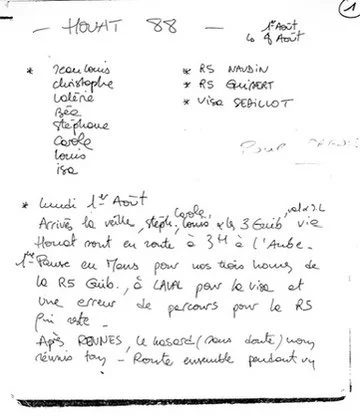 1
— HOUAT 88 —
1er Août
le 8 Août
* Jean Louis
Christophe
Valérie
Béa
Stéphane
Carole
Louis
Isa
* R5 NAUDIN
* R5 GUIBERT
* Visa SEBILLOT
POUR
* Lundi 1er Août
Arrivés la veille, Steph, Carole, Louis, & les 3 Guib, via
Houat sont en route à 3H à l'Aube.
1ère Pause en Mans pour nos trois homes de
la R5 Guib. à LAVAL pour la Visa et
une erreur de parcours pour la R5
Après RENNES, le hasard (sans doute) nous
réunis tous — Route ensemble pendant